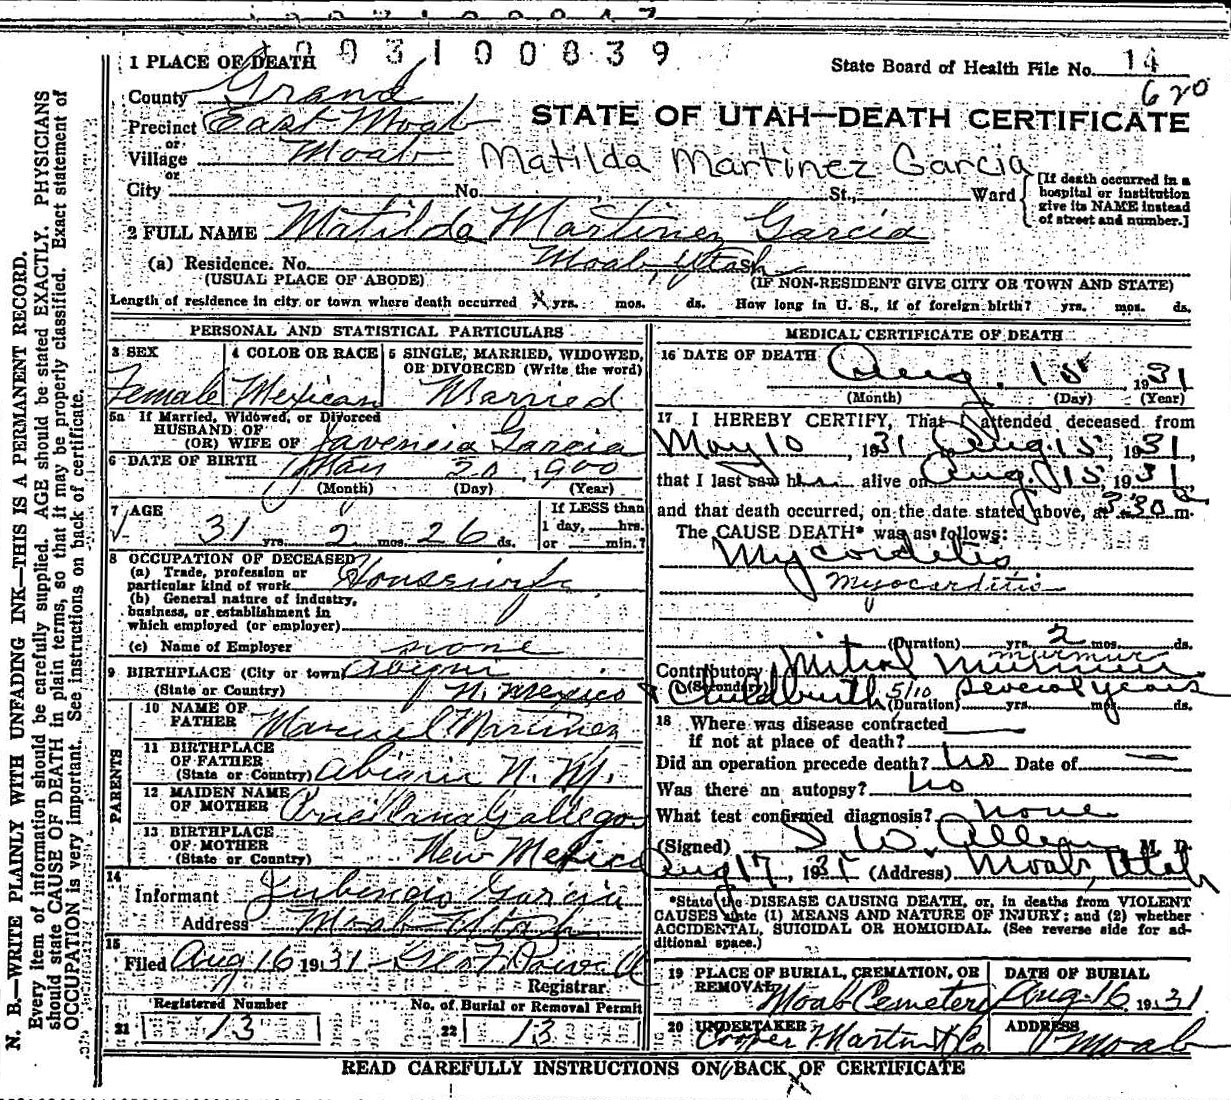 1 PLACE OF DEATH 003100839
State Board of Health File No. 14
620
County Grand
STATE OF UTAH—DEATH CERTIFICATE
Precinct East Moab
or
Village Moab Matilda Martinez Garcia
or
City No. St., Ward [If death occurred in a hospital or institution give its NAME instead of street and number.]
2 FULL NAME Matilda Martinez Garcia
(a) Residence. No. Moab, Utah
(USUAL PLACE OF ABODE) (IF NON-RESIDENT GIVE CITY OR TOWN AND STATE)
Length of residence in city or town where death occurred X yrs. mos. ds. How long in U. S., if of foreign birth? yrs. mos. ds.
PERSONAL AND STATISTICAL PARTICULARS
3 SEX 4 COLOR OR RACE 5 SINGLE, MARRIED, WIDOWED, OR DIVORCED (Write the word)
Female Mexican Married
5a If Married, Widowed, or Divorced
HUSBAND OF
(OR) WIFE OF Javencia Garcia
6 DATE OF BIRTH May 20, 1900
(Month) (Day) (Year)
7 AGE If LESS than
1 day, hrs.
31 yrs. 2 mos. 26 ds. or min.?
8 OCCUPATION OF DECEASED
(a) Trade, profession or
particular kind of work Housewife
(b) General nature of industry,
business, or establishment in
which employed (or employer)
(c) Name of Employer none
9 BIRTHPLACE (City or town) Abiqui
(State or Country) N. Mexico
PARENTS
10 NAME OF
FATHER Martinez
11 BIRTHPLACE
OF FATHER
(State or Country) Abiquiu N. M.
12 MAIDEN NAME
OF MOTHER Gallegos
13 BIRTHPLACE
OF MOTHER
(State or Country) New Mexico
14
Informant Jubencio Garcia
Address Moab Utah
15
Filed Aug 16 1931
Registrar
Registered Number No. of Burial or Removal Permit
21 13 22 13
MEDICAL CERTIFICATE OF DEATH
16 DATE OF DEATH Aug. 15 1931
(Month) (Day) (Year)
17 I HEREBY CERTIFY, That I attended deceased from
May 10, 1931 to Aug. 15, 1931,
that I last saw her alive on Aug. 15, 1931,
and that death occurred, on the date stated above, at 3:30 a m.
The CAUSE DEATH* was as follows:
Mycordetis
Myocarditis
(Duration) yrs. 2 mos. ds.
murmur
Contributory Mitral
(Secondary)
& Childbirth 5/10 several years
(Duration) yrs. mos. ds.
18 Where was disease contracted
if not at place of death?
Did an operation precede death? No Date of —
Was there an autopsy? No
What test confirmed diagnosis? none
(Signed) I. W. Allen M. D.
Aug 17, 1931 (Address) Moab, Utah
*State the DISEASE CAUSING DEATH, or, in deaths from VIOLENT
CAUSES state (1) MEANS AND NATURE OF INJURY; and (2) whether
ACCIDENTAL, SUICIDAL OR HOMICIDAL. (See reverse side for ad-
ditional space.)
19 PLACE OF BURIAL, CREMATION, OR REMOVAL DATE OF BURIAL
Moab Cemetery Aug. 16, 1931
20 UNDERTAKER ADDRESS
Cooper Martin Co Moab
READ CAREFULLY INSTRUCTIONS ON BACK OF CERTIFICATE
N. B.—WRITE PLAINLY WITH UNFADING INK—THIS IS A PERMANENT RECORD.
Every item of information should be carefully supplied. AGE should be stated EXACTLY. PHYSICIANS
should state CAUSE OF DEATH in plain terms, so that it may be properly classified. Exact statement of
OCCUPATION is very important. See instructions on back of certificate.